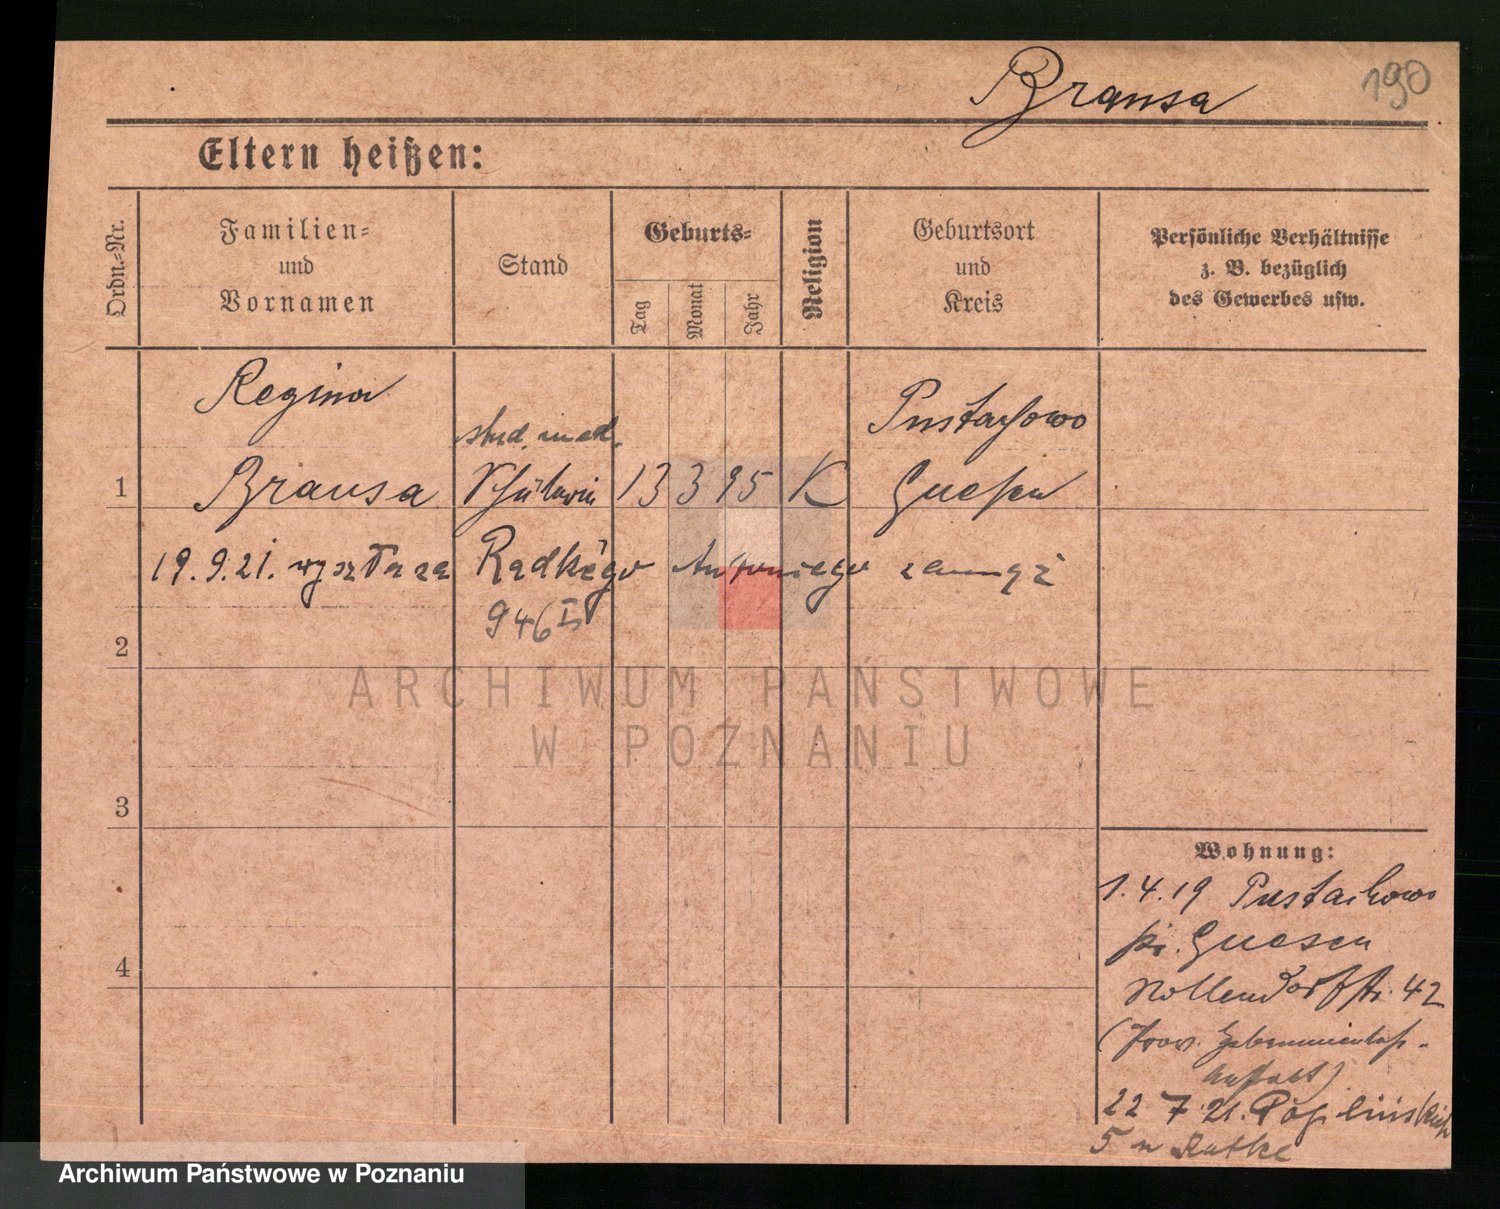 Bransa
190
Eltern heißen:
Ordn.-Nr.
Familien-
und
Vornamen
Stand
Geburts-
Tag
Monat
Jahr
Religion
Geburtsort
und
Kreis
Persönliche Verhältnisse
z. B. bezüglich
des Gewerbes usw.
Regina
stud. med.
Pustachowo
1
Bransa
Schülerin
13
3
95
K
Gnesen
19.9.21. wyszła za Radkego Antoniego zamąż
946 I
2
ARCHIWUM PAŃSTWOWE
W POZNANIU
3
Wohnung:
1.4.19 Pustachowo
Kr. Gnesen
4
Nollendorfstr. 42
(Prov. Hebammenlehr-
anstalt)
22 7. 21.
5 Ratke
Archiwum Państwowe w Poznaniu